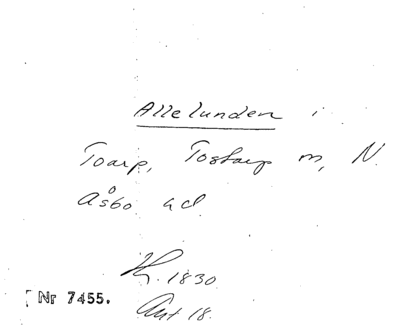 Allelunden i
Toarp, Tostarp m, N.
Åsbo hd.
K. 1830
Nr 7455.
Ant 18.